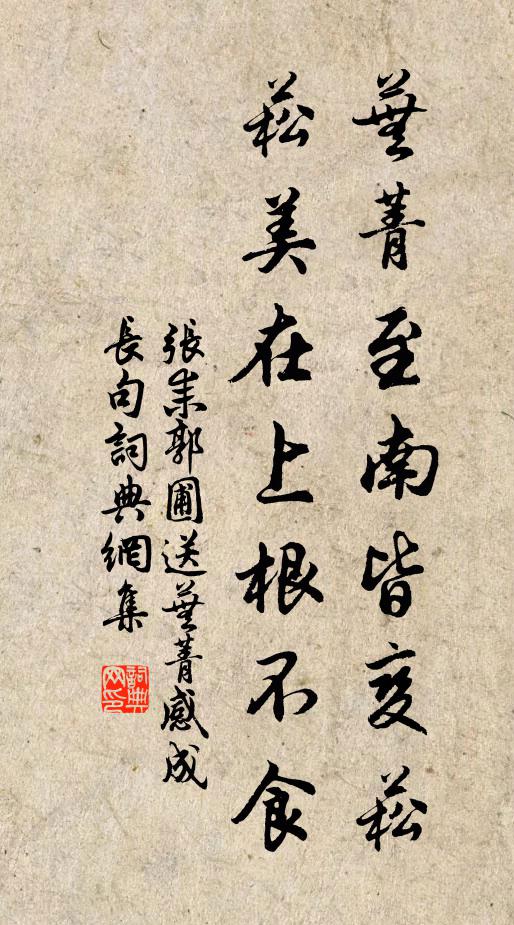 蕪菁至南皆變菘
菘美在上根不食
張耒郭圃送蕪菁感成
長句詞典網集
詞典
网印